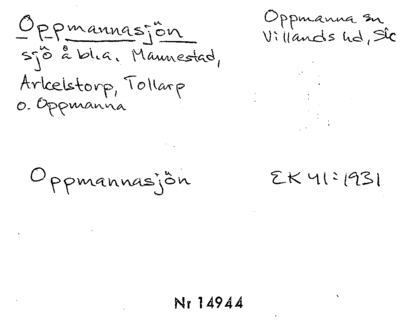 Oppmannasjön
Oppmanna sn
Villands hd, Sk
sjö å bl.a. Mannestad,
Arkelstorp, Tollarp
o. Oppmanna
Oppmannasjön
EK 41:1931
Nr 14944